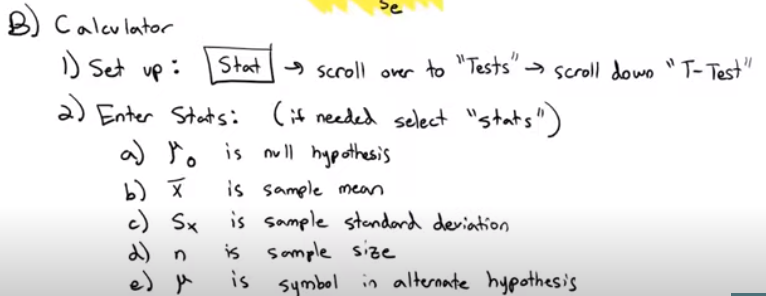 Se
B) Calculator
1) Set up: Stat → scroll over to "Tests" → scroll down "T-Test"
2) Enter Stats: (if needed select "stats")
a) μ₀ is null hypothesis
b) x̄ is sample mean
c) Sx is sample standard deviation
d) n is sample size
e) μ is symbol in alternate hypothesis